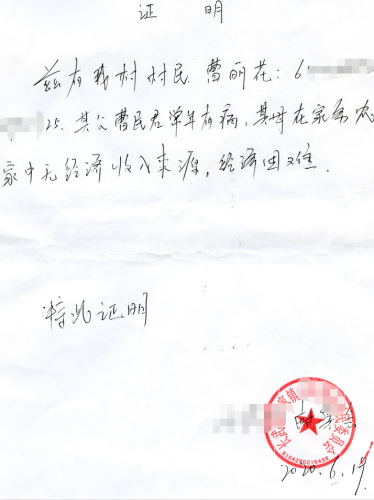 证 明
兹有我村村民 曹丽花：6
25. 其父曹民君常年有病，其母在家务农
家中无经济收入来源，经济困难．
特此证明
长武 家镇 委员会
6104200016459
2020.6.1号